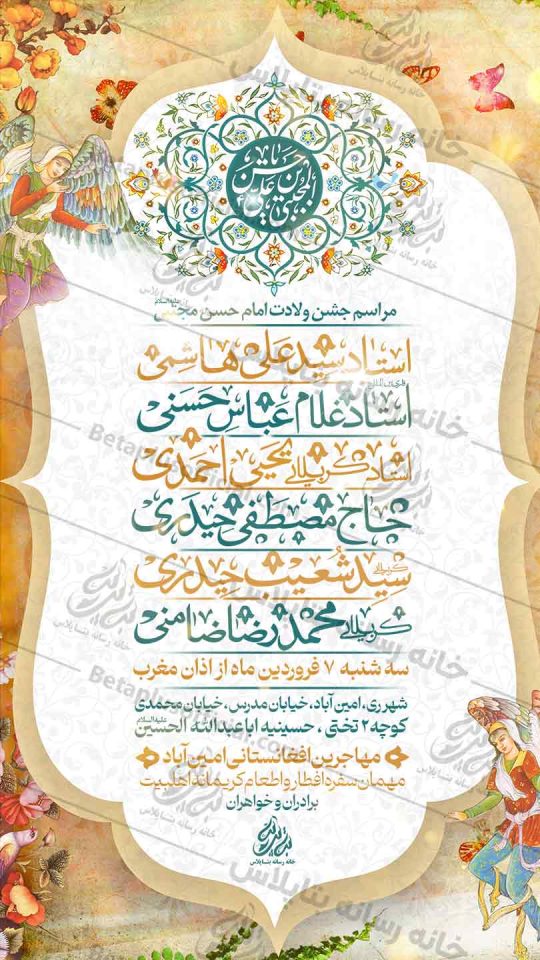 یا حسن بن علی المجتبی
مراسم جشن ولادت امام حسن مجتبی علیه‌السلام
استاد سید علی هاشمی
قاری قرآن
استاد غلام عباس حسنی
استاد کربلائی یحیی احمدی
حاج مصطفی حیدری
کربلائی سید شعیب حیدری
کربلائی محمدرضا ضامنی
سه شنبه ۷ فروردین ماه از اذان مغرب
شهرری، امین آباد، خیابان مدرس، خیابان محمدی
کوچه ۲ تختی، حسینیه اباعبدالله الحسین علیه‌السلام
مهاجرین افغانستانی امین آباد
مهمان سفره افطار و اطعام کریمانه اهلبیت
برادران و خواهران
بتاپلاس
خانه رسانه بتاپلاس